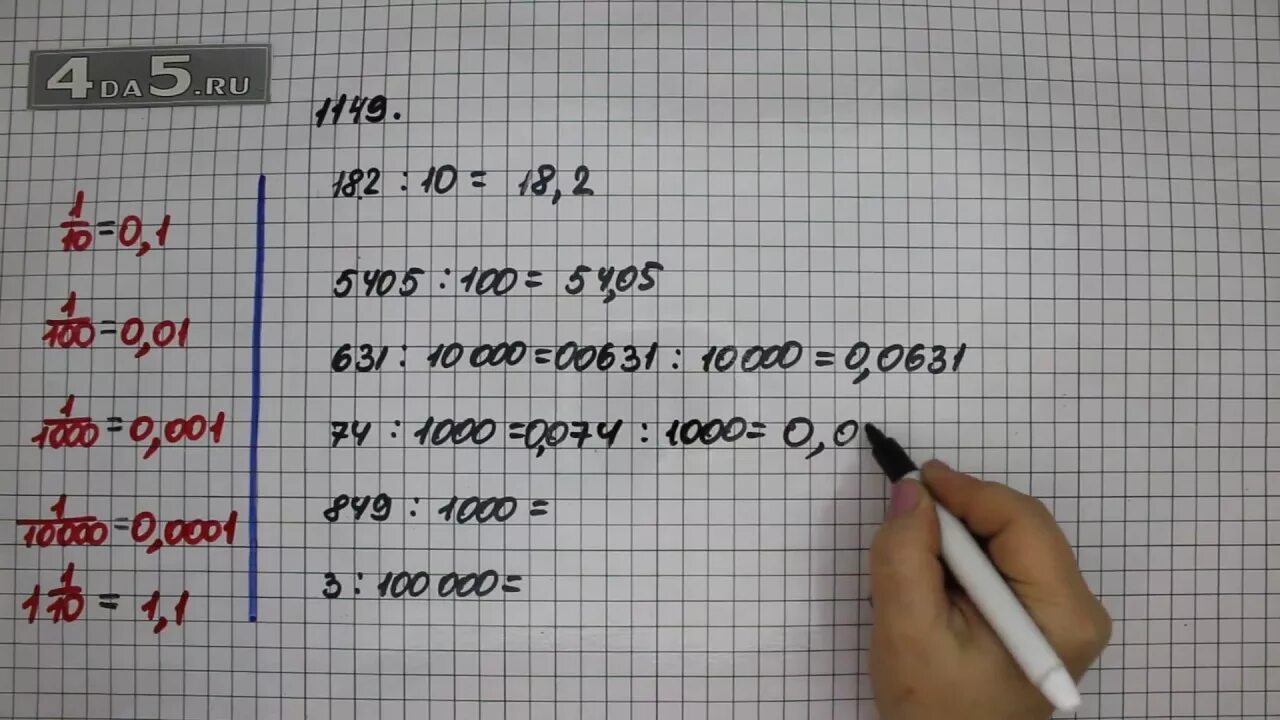 4ДА5.RU
1149.
182 : 10 = 18,2
5405 : 100 = 54,05
631 : 10 000 = 00631 : 10 000 = 0,0631
74 : 1000 = 0,074 : 1000 = 0,0
849 : 1000 =
3 : 100 000 =
1/10 = 0,1
1/100 = 0,01
1/1000 = 0,001
1/10000 = 0,0001
1 1/10 = 1,1